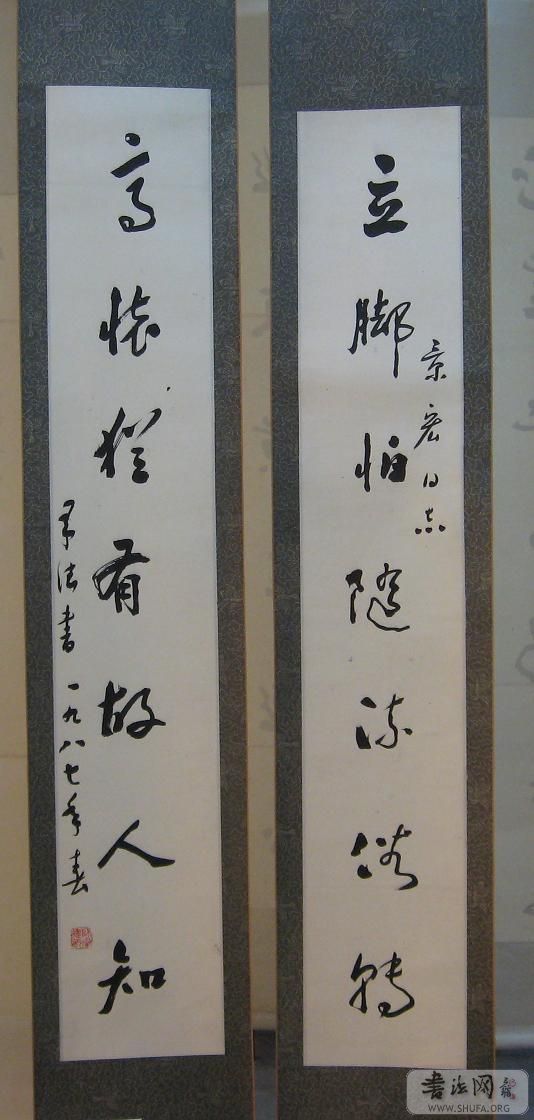 立脚怕隨流俗轉
景宏同志
高懷猶有故人知
法書 一九八七年春
書法网
WWW.SHUFA.ORG